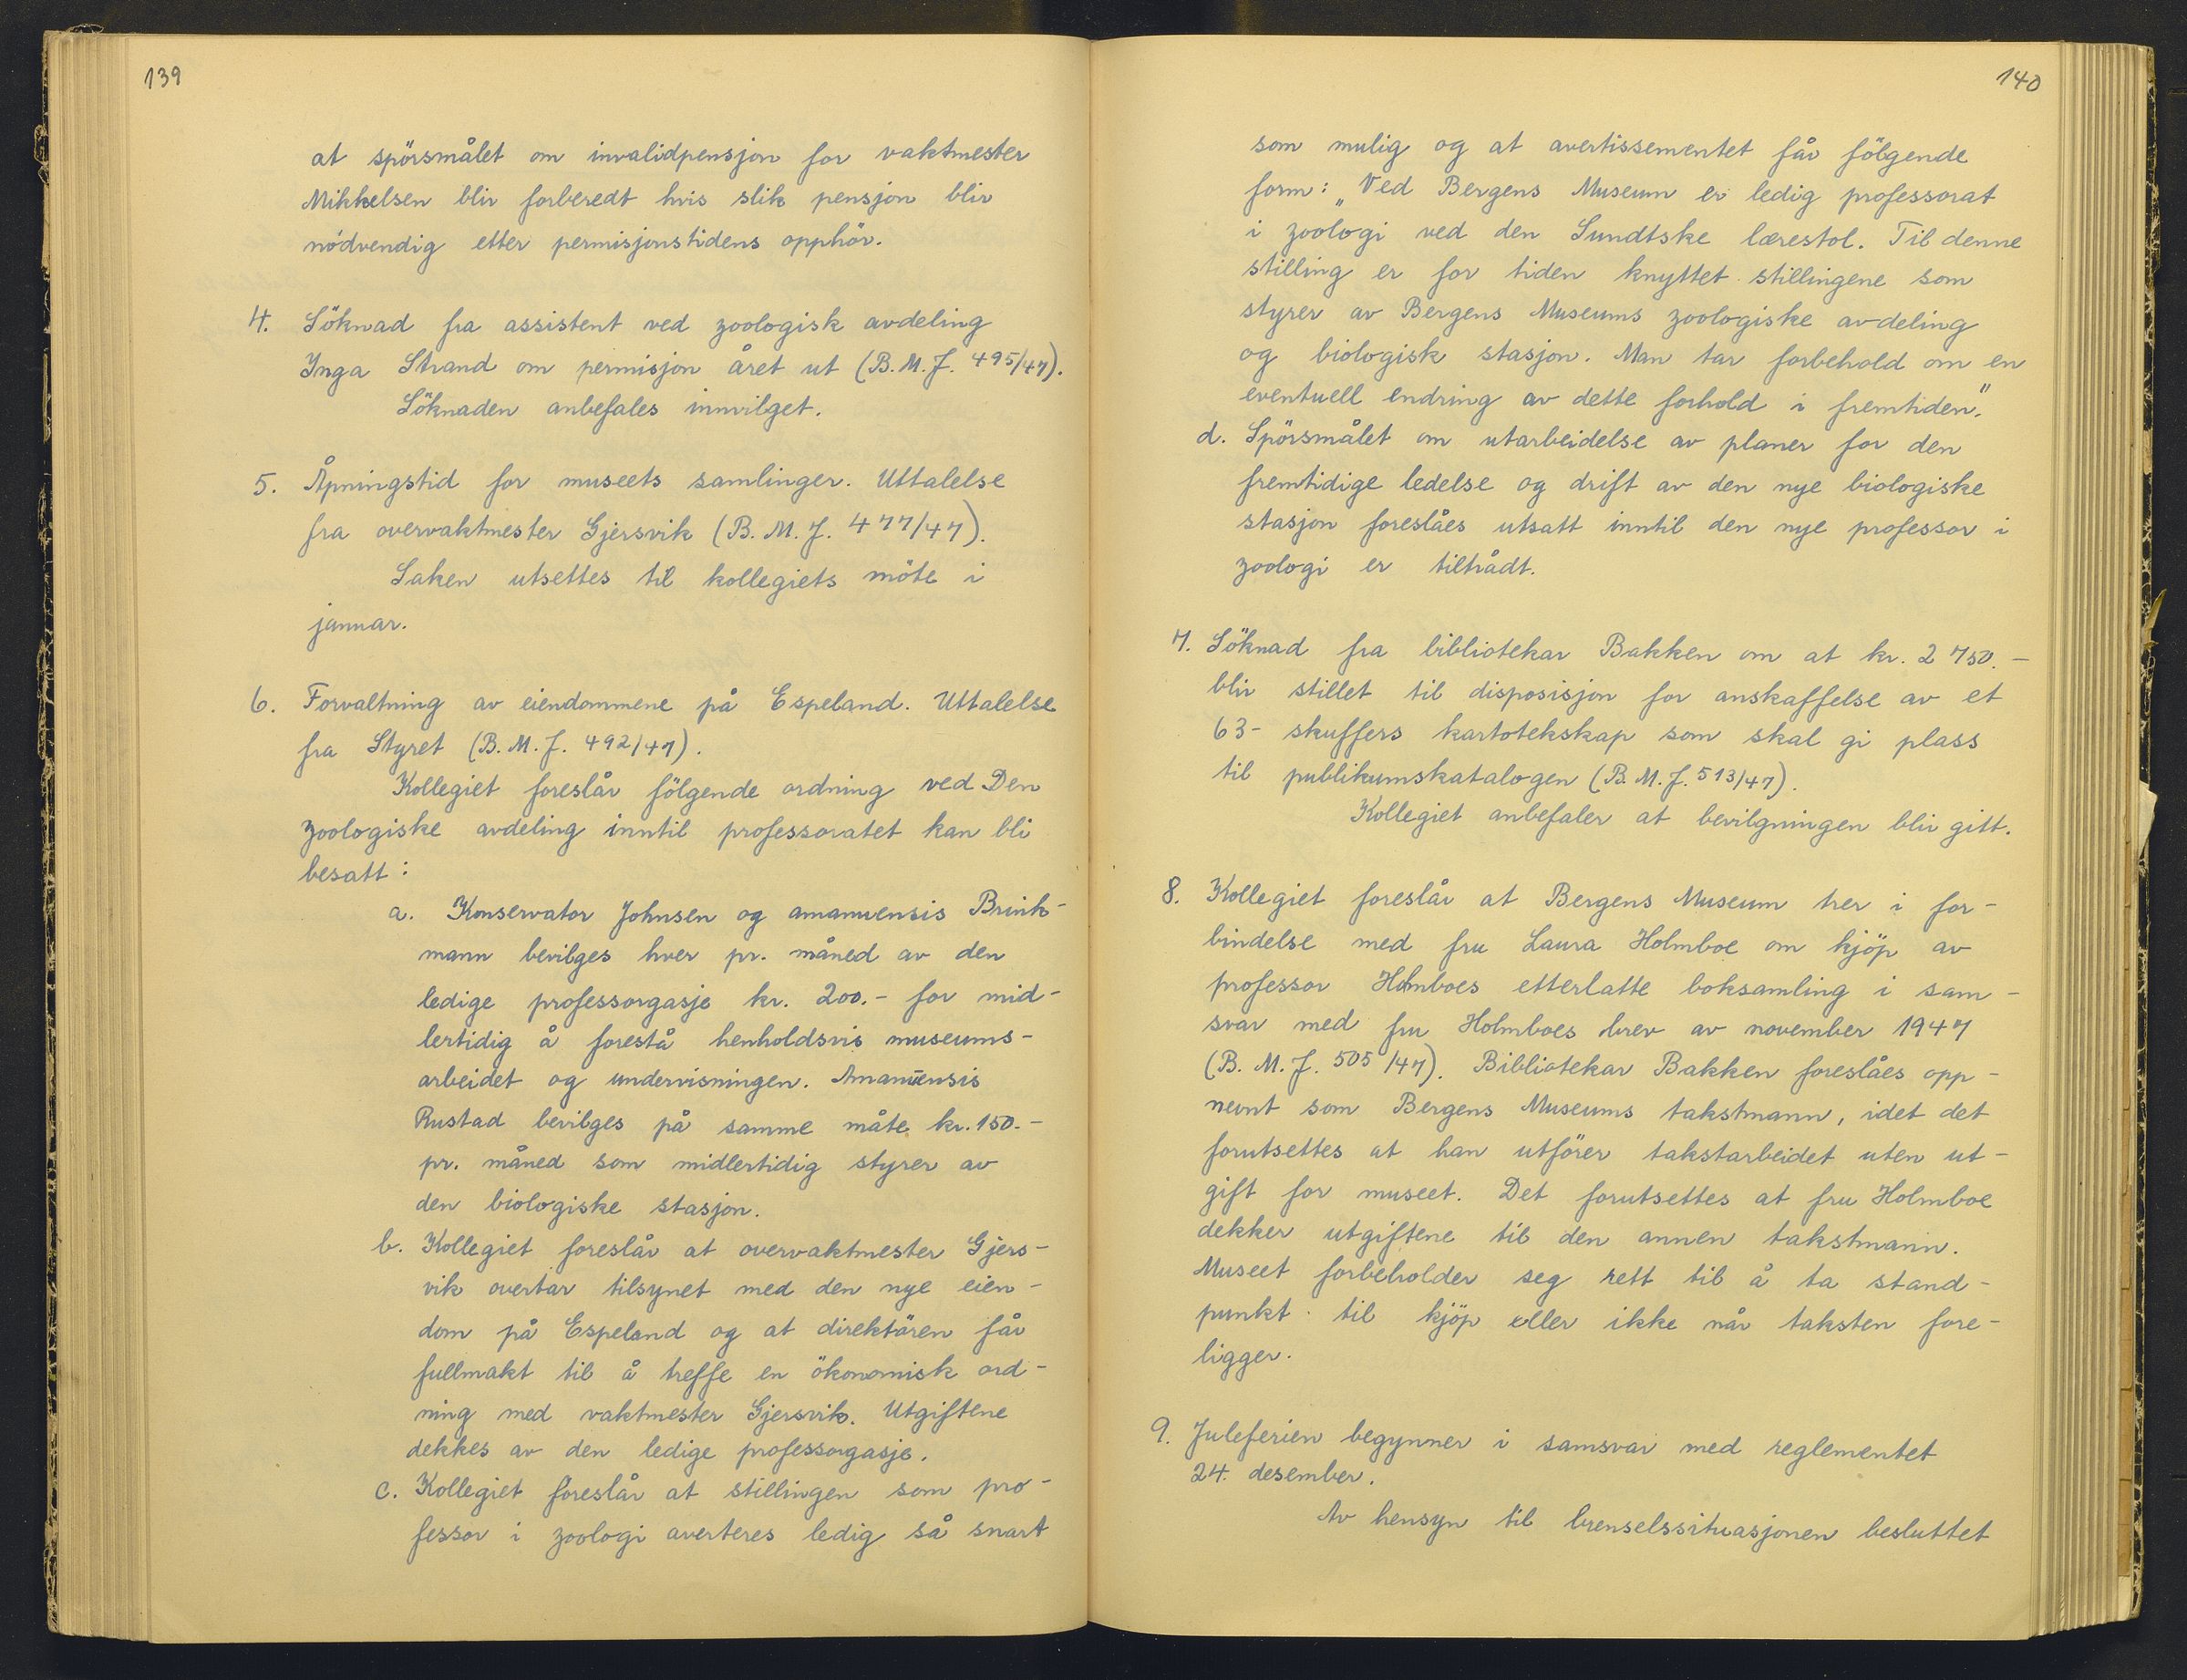 139
at spörsmålet om invalidpensjon for vaktmester
Mikkelsen blir forberedt hvis slik pensjon blir
nödvendig etter permisjonstidens opphör.
4. Söknad fra assistent ved zoologisk avdeling
Inga Strand om permisjon året ut (B.M.J. 495/47).
Söknaden anbefales innvilget.
5. Åpningstid for museets samlinger. Uttalelse
fra overvaktmester Gjersvik (B.M.J. 477/47).
Saken utsettes til kollegiets möte i
januar.
6. Forvaltning av eiendommene på Espeland. Uttalelse
fra Styret (B.M.J. 492/47).
Kollegiet foreslår fölgende ordning ved Den
zoologiske avdeling inntil professoratet kan bli
besatt:
a. Konservator Johnsen og amanuensis Brink-
mann bevilges hver pr. måned av den
ledige professorgasje kr. 200.- for mid-
lertidig å forestå henholdsvis museums-
arbeidet og undervisningen. Amanuensis
Rustad bevilges på samme måte kr. 150.-
pr. måned som midlertidig styrer av
den biologiske stasjon.
b. Kollegiet foreslår at overvaktmester Gjers-
vik overtar tilsynet med den nye eien-
dom på Espeland og at direktören får
fullmakt til å treffe en ökonomisk ord-
ning med vaktmester Gjersvik. Utgiftene
dekkes av den ledige professorgasje.
c. Kollegiet foreslår at stillingen som pro-
fessor i zoologi averteres ledig så snart
140
som mulig og at avertissementet får fölgende
form: „Ved Bergens Museum er ledig professorat
i zoologi ved den Sundtske lærestol. Til denne
stilling er for tiden knyttet stillingene som
styrer av Bergens Museums zoologiske avdeling
og biologisk stasjon. Man tar forbehold om en
eventuell endring av dette forhold i fremtiden."
d. Spörsmålet om utarbeidelse av planer for den
fremtidige ledelse og drift av den nye biologiske
stasjon foreslåes utsatt inntil den nye professor i
zoologi er tiltrådt.
7. Söknad fra bibliotekar Bakken om at kr. 2 750.-
blir stillet til disposisjon for anskaffelse av et
63- skuffers kartotekskap som skal gi plass
til publikumskatalogen (B.M.J. 513/47).
Kollegiet anbefaler at bevilgningen blir gitt.
8. Kollegiet foreslår at Bergens Museum trer i for-
bindelse med fru Laura Holmboe om kjöp av
professor Holmboes etterlatte boksamling i sam-
svar med fru Holmboes brev av november 1947
(B.M.J. 505/47). Bibliotekar Bakken foreslåes opp-
nevnt som Bergens Museums takstmann, idet det
forutsettes at han utförer takstarbeidet uten ut-
gift for museet. Det forutsettes at fru Holmboe
dekker utgiftene til den annen takstmann.
Museet forbeholder seg rett til å ta stand-
punkt til kjöp eller ikke når taksten fore-
ligger.
9. Juleferien begynner i samsvar med reglementet
24. desember.
Av hensyn til brenselssituasjonen besluttet